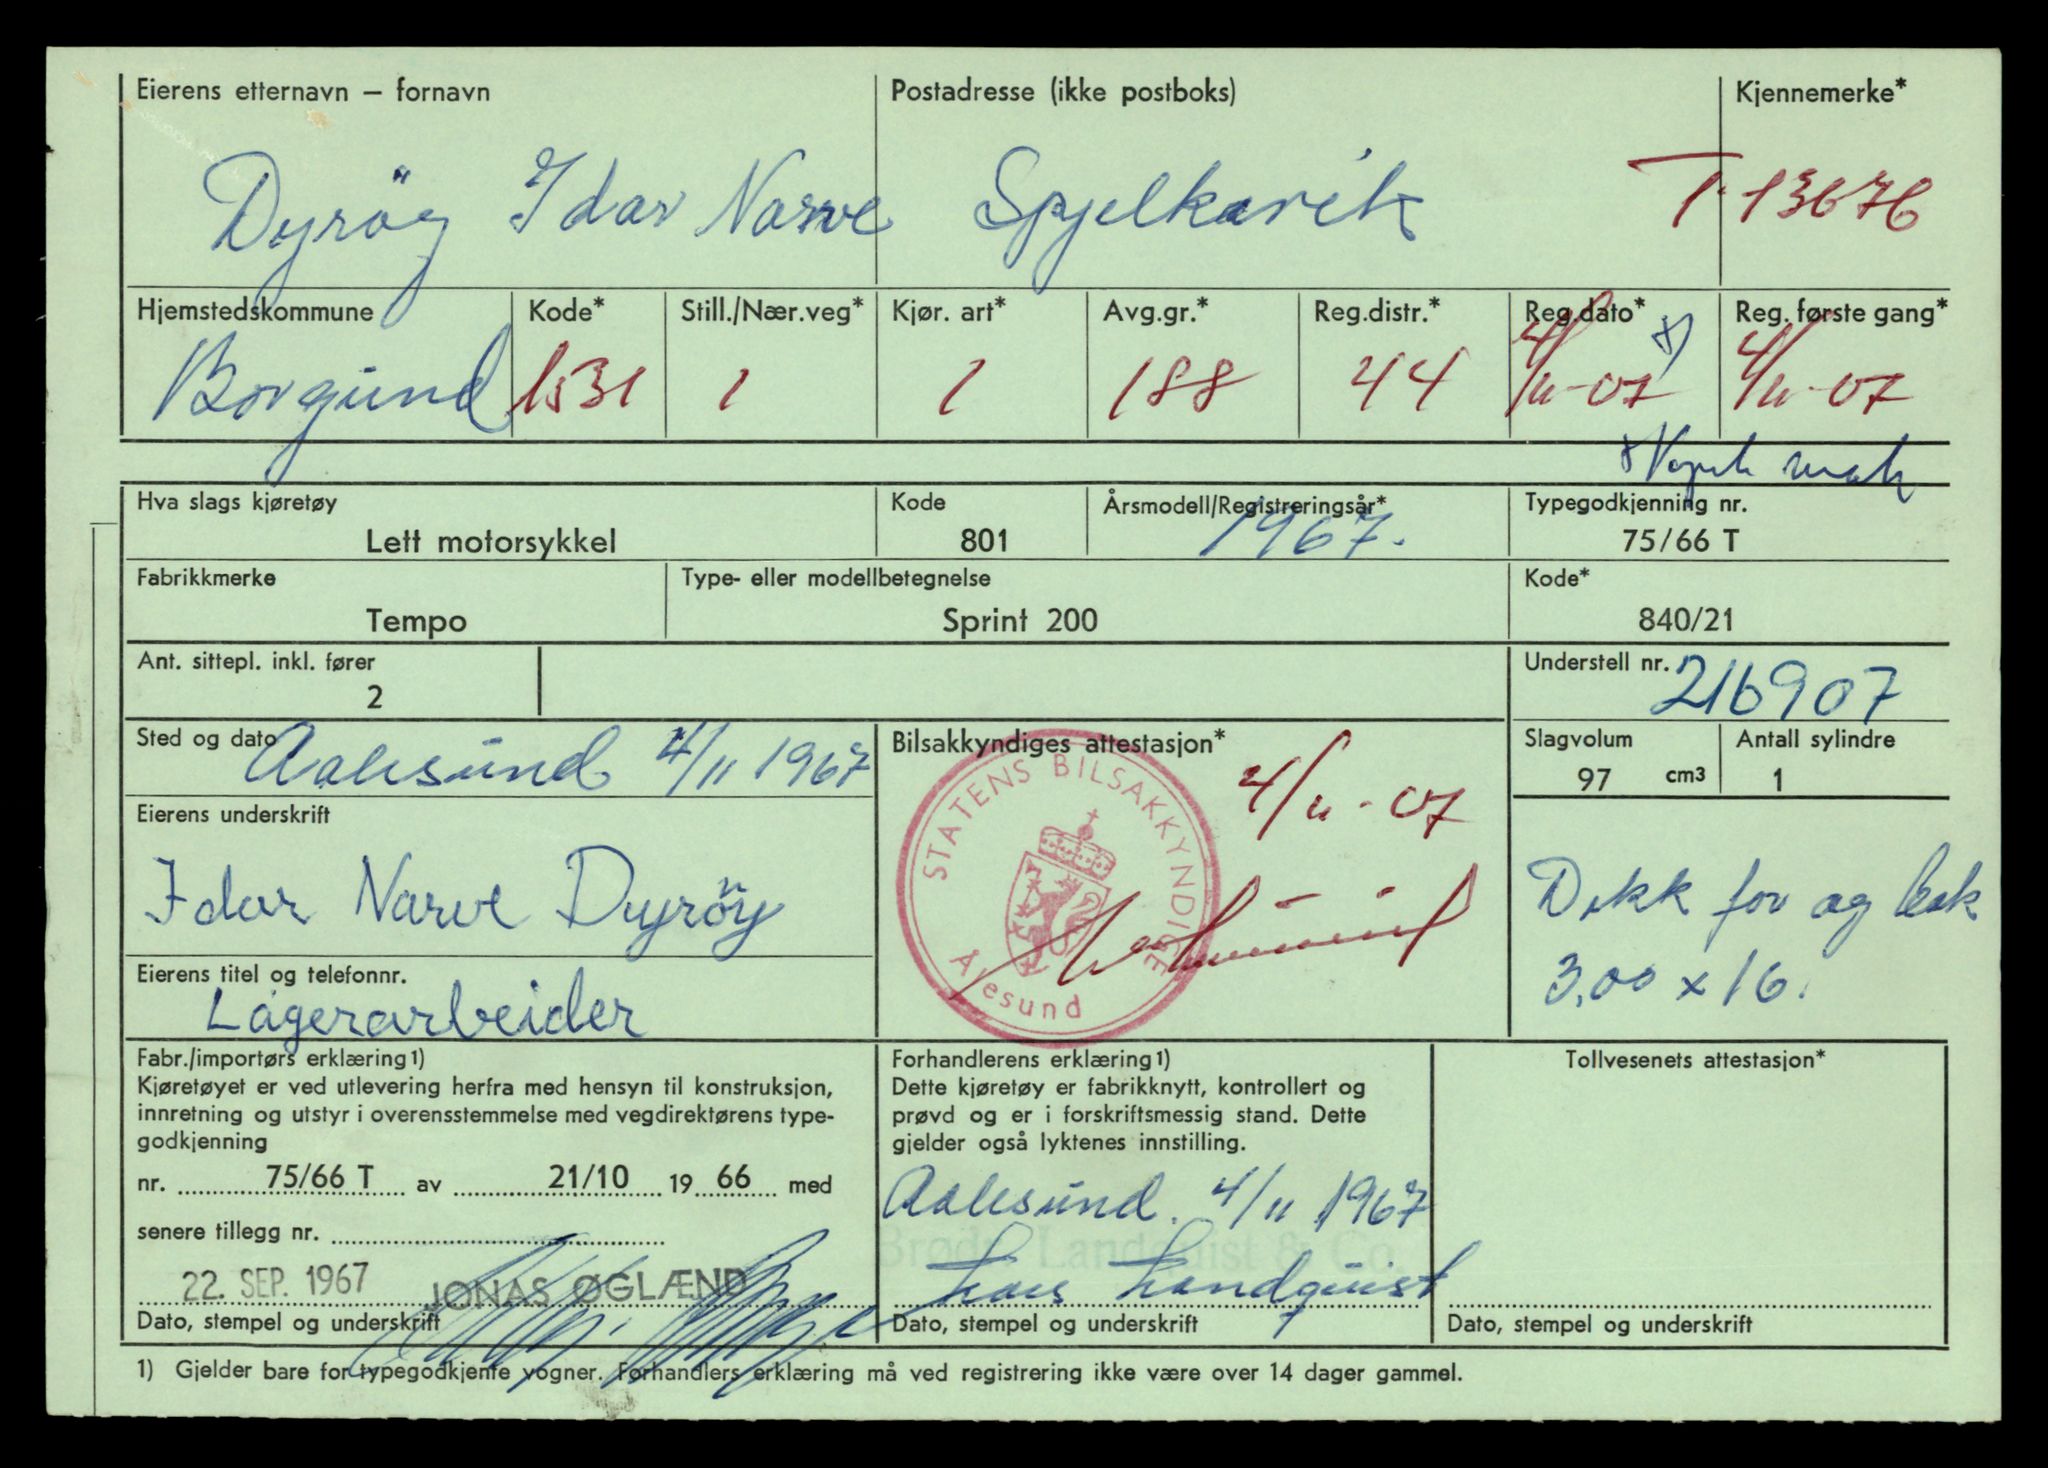 Eierens etternavn – fornavn Postadresse (ikke postboks) Kjennemerke*
Dyröy Idar Narve Spjelkavik T-13676
Hjemstedskommune Kode* Still./Nær.veg* Kjør. art* Avg.gr.* Reg.distr.* Reg.dato* Reg. første gang*
Borgund 1531 1 1 188 44 4/11-67 4/11-67
Hva slags kjøretøy Kode Årsmodell/Registreringsår* Typegodkjenning nr.
Lett motorsykkel 801 1967. 75/66 T
Fabrikkmerke Type- eller modellbetegnelse Kode*
Tempo Sprint 200 840/21
Ant. sittepl. inkl. fører Understell nr.
2 216907
Sted og dato Aalesund 4/11 1967 Bilsakkyndiges attestasjon* Slagvolum Antall sylindre
4/11-67 97 cm3 1
STATENS BILSAKKYNDIGE
Ålesund
Eierens underskrift
Idar Narve Dyröy
Dekk for og bak
3,00 x 16.
Eierens titel og telefonnr.
Lagerarbeider
Fabr./importørs erklæring1) Forhandlerens erklæring1) Tollvesenets attestasjon*
Kjøretøyet er ved utlevering herfra med hensyn til konstruksjon, Dette kjøretøy er fabrikknytt, kontrollert og
innretning og utstyr i overensstemmelse med vegdirektørens type- prøvd og er i forskriftsmessig stand. Dette
godkjenning gjelder også lyktenes innstilling.
nr. 75/66 T av 21/10 19 66 med Aalesund. 4/11 1967
senere tillegg nr. Brødr. Landquist & Co.
22. SEP. 1967 JONAS ØGLÆND Landquist
Dato, stempel og underskrift Dato, stempel og underskrift Dato, stempel og underskrift
1) Gjelder bare for typegodkjente vogner. Forhandlers erklæring må ved registrering ikke være over 14 dager gammel.